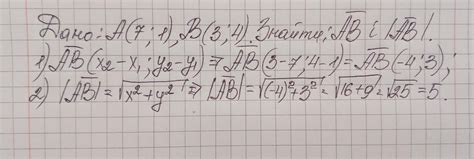 Дано: A(7;1), B(3;4). Знайти: AB і |AB|.
1) AB(x₂-x₁; y₂-y₁) ⇒ AB(3-7; 4-1) = AB(-4; 3);
2) |AB| = √x²+y² ⇒ |AB| = √(-4)²+3² = √16+9 = √25 = 5.